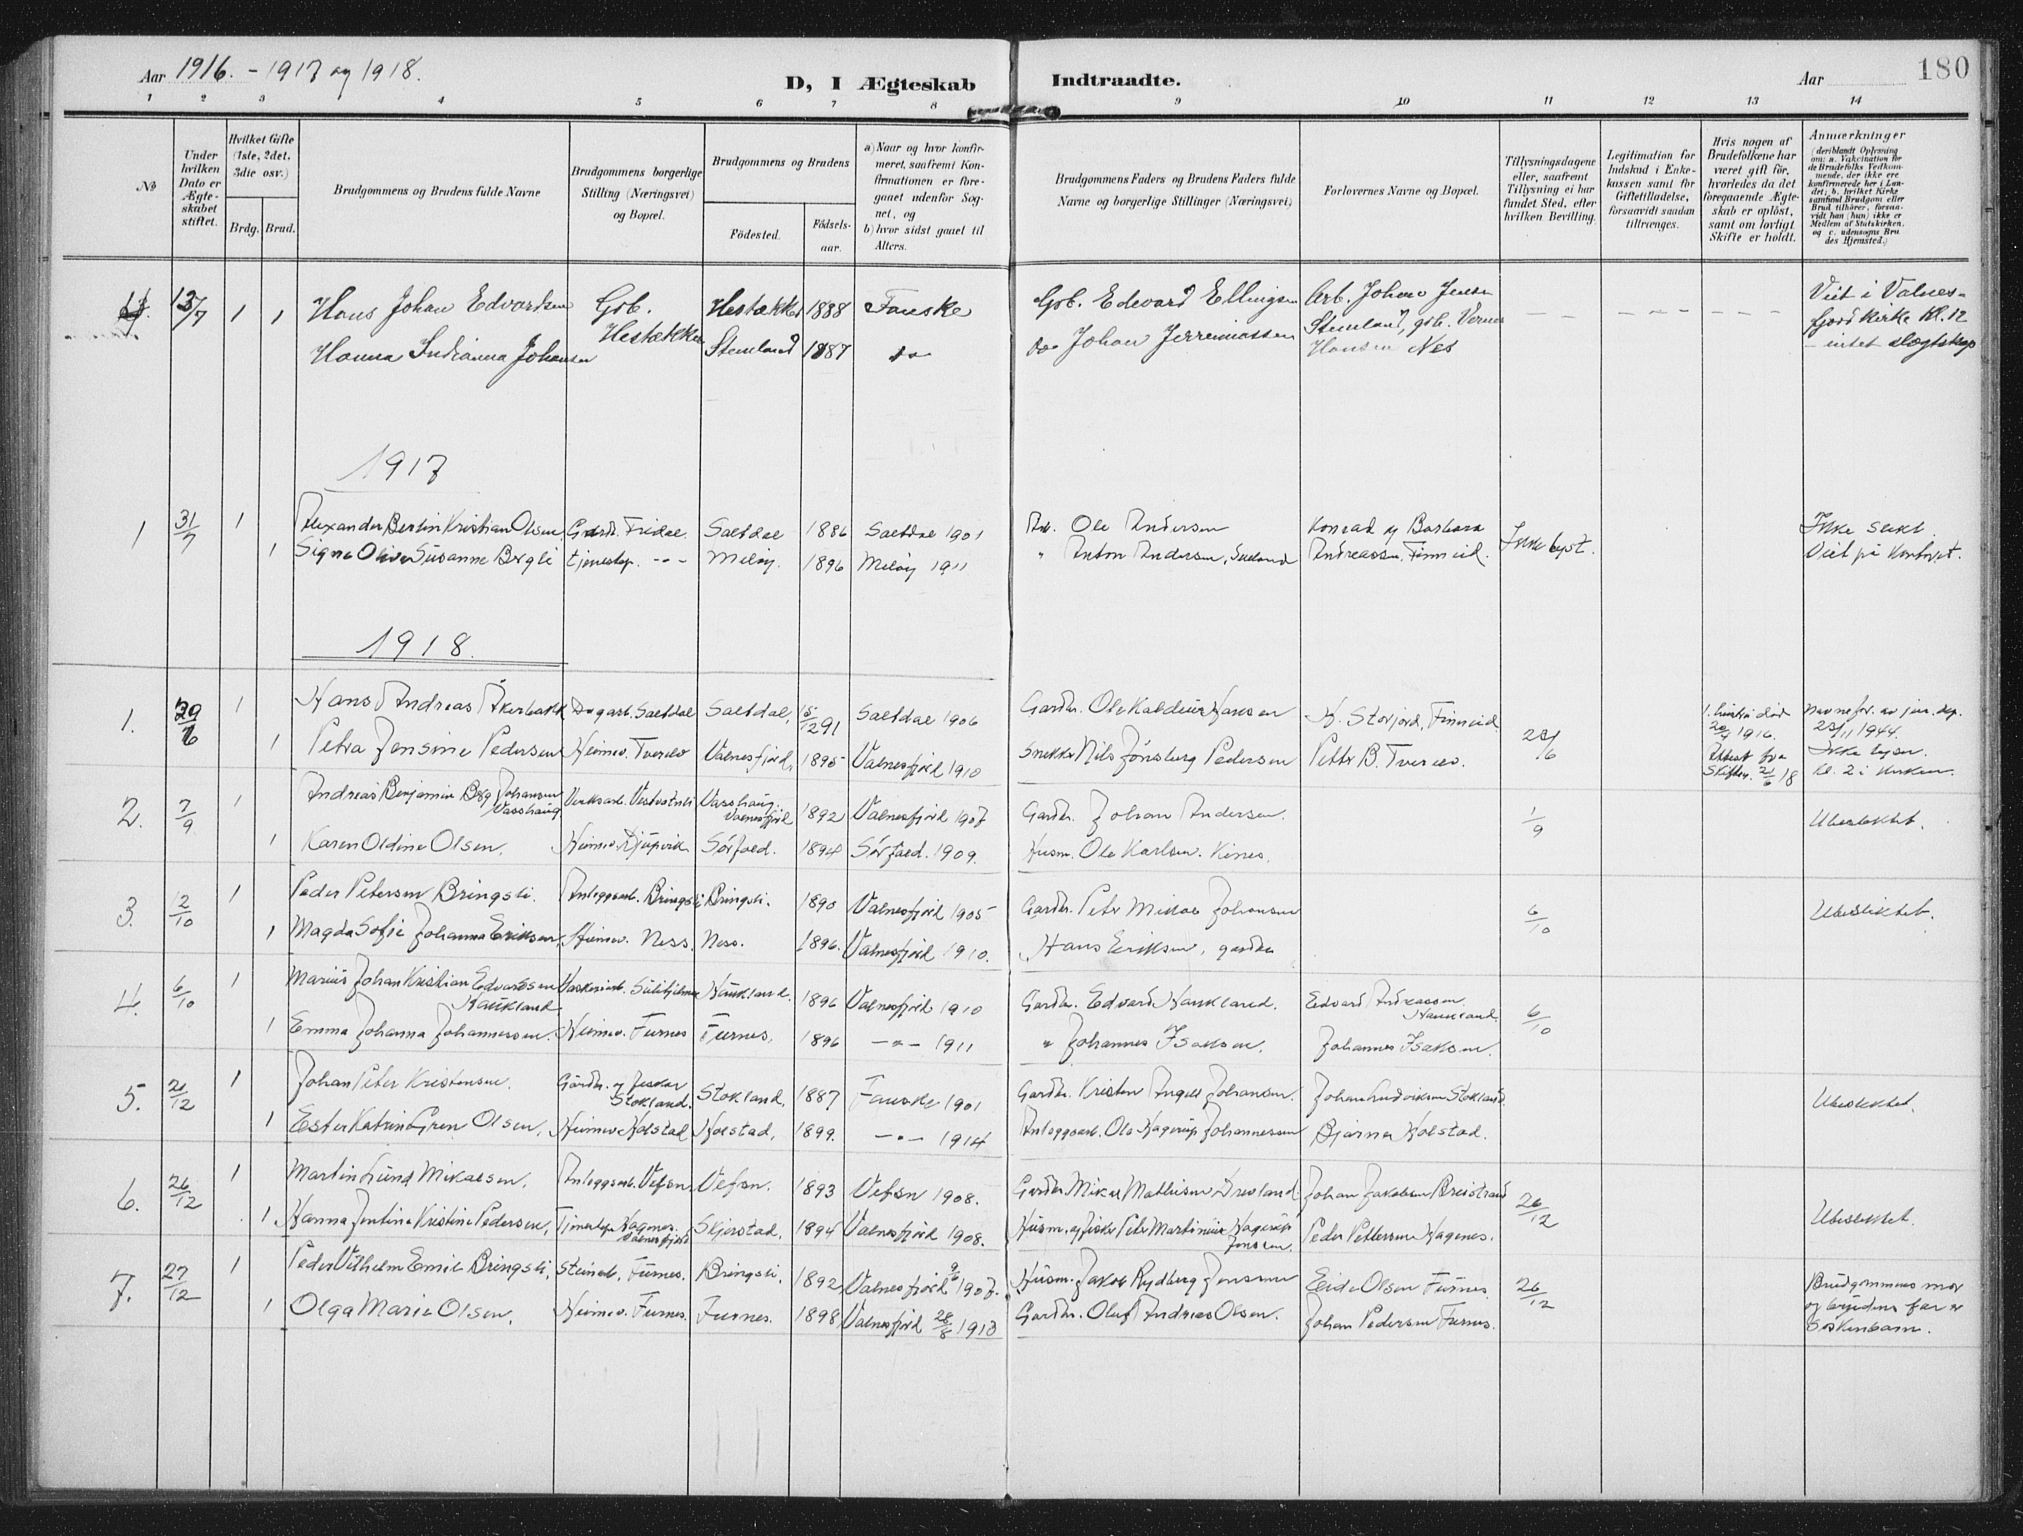 Aar 1916. - 1917 og 1918.
D, I Ægteskab Indtraadte.
Aar
180
1 2 3 4 5 6 7 8 9 10 11 12 13 14
No
Under hvilken Dato er Ægteskabet stiftet.
Hvilket Gifte (1ste, 2det, 3die osv.)
Brdg. Brud.
Brudgommens og Brudens fulde Navne
Brudgommens borgerlige Stilling (Næringsvei) og Bopæl.
Brudgommens og Brudens
Fødested.
Fødselsaar.
a) Naar og hvor konfirmeret, saafremt Konfirmationen er foregaaet udenfor Sognet, og
b) hvor sidst gaaet til Alters.
Brudgommens Faders og Brudens Faders fulde Navne og borgerlige Stillinger (Næringsvei)
Forlovernes Navne og Bopæl.
Tillysningsdagene eller, saafremt Tillysning ei har fundet Sted, efter hvilken Bevilling.
Legitimation for Indskud i Enkekassen samt for Giftetilladelse, forsaavidt saadan tiltrænges.
Hvis nogen af Brudefolkene har været gift før, hvorledes da det foregaaende Ægteskab er opløst, samt om lovligt Skifte er holdt.
Anmærkninger (deriblandt Oplysning om: a. Vakcination for de Brudefolks Vedkommende, der ikke ere konfirmerede her i Landet; b. hvilket Kirkesamfund Brudgom eller Brud tilhører, forsaavidt han (hun) ikke er Medlem af Statskirken, og c. udensogns Brudes Hjemsted.)
13/7 1 Hans Johan Edvardsen Gsb. Hestækker Hestækker 1888 Fauske Gsb. Edevard Ellingsen Arb. Johan Jensen Viet i Valnes-
1 Hanna Indianna Johansen Stemland 1887 do do Johan Jerremiassen Stemland, gsb. Verner Hansen Nes fjord Kirke Kl. 12 - intet slægtskap
1917
1 31/7 1 Alexander Bertin Kristian Olsen Gardb. Fridal Saltdal 1886 Saltdal 1901 Arb. Ole Andersen Konrad og Barbara Ikke lyst. Ikke slekt.
1 Signe Olive Susanne Bergli tjenestep. -"- Meløy. 1896 Meløy 1911 " Anton Andersen, Andreassen, Finneid. Viet på Kontoret.
1918.
1. 29/6 1 Hans Andreas Åkerbakk Dagarb. Saltdal Saltdal, 15/12 91 Saltdal 1906 Gardbr. Ole Kaldeus Hansen H. Storjord, Finneid 23/6 1. hustru død 1916. Attest fra Skifter. 21/6 18 Navnefor. av jus. dep. 23/11 1944.
1 Petra Jensine Pedersen Heimev. Tverelv Valnesfjord, 1895 Valnesfjord 1910 Snekker Nils Tønsberg Pedersen Petter B. Tverelv. Ikke lyser. Kl. 2 i kirken.
2. 7/9 1 Andreas Benjamin Berg Johansen Vasshaug Verksarb. Vestvatnli Vasshaug. Valnesfjord 1892 Valnesfjord 1907 Gardbr. Johan Andersen. 1/9 Ubeslektet.
1 Karen Oldine Olsen. Heimev. Djupvik Sørfold. 1894 Sørfold. 1909. Husm. Ole Karlsen. Kines.
3. 12/10 1 Peder Petersen Bringsli. Anleggsarb. Bringsli Bringsli. 1890 Valnesfjord 1905 Gardbr. Peter Mikal Johansen 6/10 Ubeslektet.
1 Magda Sofie Johanna Eriksen, Heimev. Ness. Ness. 1896. Valnesfjord 1910. Hans Eriksen, gardbr.
4. 6/10 1 Marius Johan Kristian Edvardsen Haukland Vaskeriarb. Sulitjelma Haukland. 1896 Valnesfjord 1910 Gardbr. Edvard Haukland. Edvard Andreassen Haukland. 6/10
1 Emma Johanna Johannessen. Heimev. Furnes Furnes, 1896 -"- 1911 " Johannes Isaksen. Johannes Isaksen.
5. 2/12 1 Johan Peter Kristensen. Gardbr. og fisker Stokland. Stokland, 1887 Fauske 1901 Gardbr. Kristen Angell Johansen. Johan Ludviksen Stokland. Ubeslektet.
1 Ester Katrine Gren Olsen, Heimev. Kolstad Kolstad, 1899. -"- 1914 Anleggsarb. Ole Hagerup Johannessen Bjarne Kolstad.
6. 26/12 1 Martin Lund Mikalsen. Anleggsarb. Vefsn Vefsn. 1893 Vefsn 1908. Gardbr. Mikal Mathisen Drevland. Johan Jakobsen Breistrand 26/12
1 Hanna Jentine Kristine Pedersen, Tjenestep. Hagenes. Valnesfjord Skjerstad, 1894 Valnesfjord 1908. Husm. og fisker Peter Martinius Hagerup Jenssen. Peder Pettersen Hagenes. Ubeslektet.
7. 27/12 1 Peder Vilhelm Emil Bringsli, Steinarb. Furnes. Bringsli. 1892 Valnesfjord 9/6 1907. Husm. Jakob Rydberg Jenssen Eide Olsen Furnes. 26/12 Brudgommens mor
1 Olga Marie Olsen. Heimev. Furnes. Furnes. 1898 Valnesfjord 28/8 1913 Gardbr. Oluf Andreas Olsen. Johan Pedersen Furnes. og brudens far er søskenbarn.